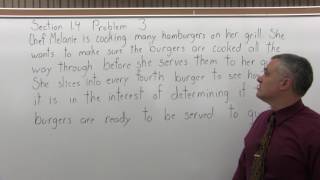 Section 1.4 Problem 3
Chef Melanie is cooking many hamburgers on her grill. She
wants to make sure the burgers are cooked all the
way through before she serves them to her
She slices into every fourth burger to see
it is in the interest of determining if
burgers are ready to be served to